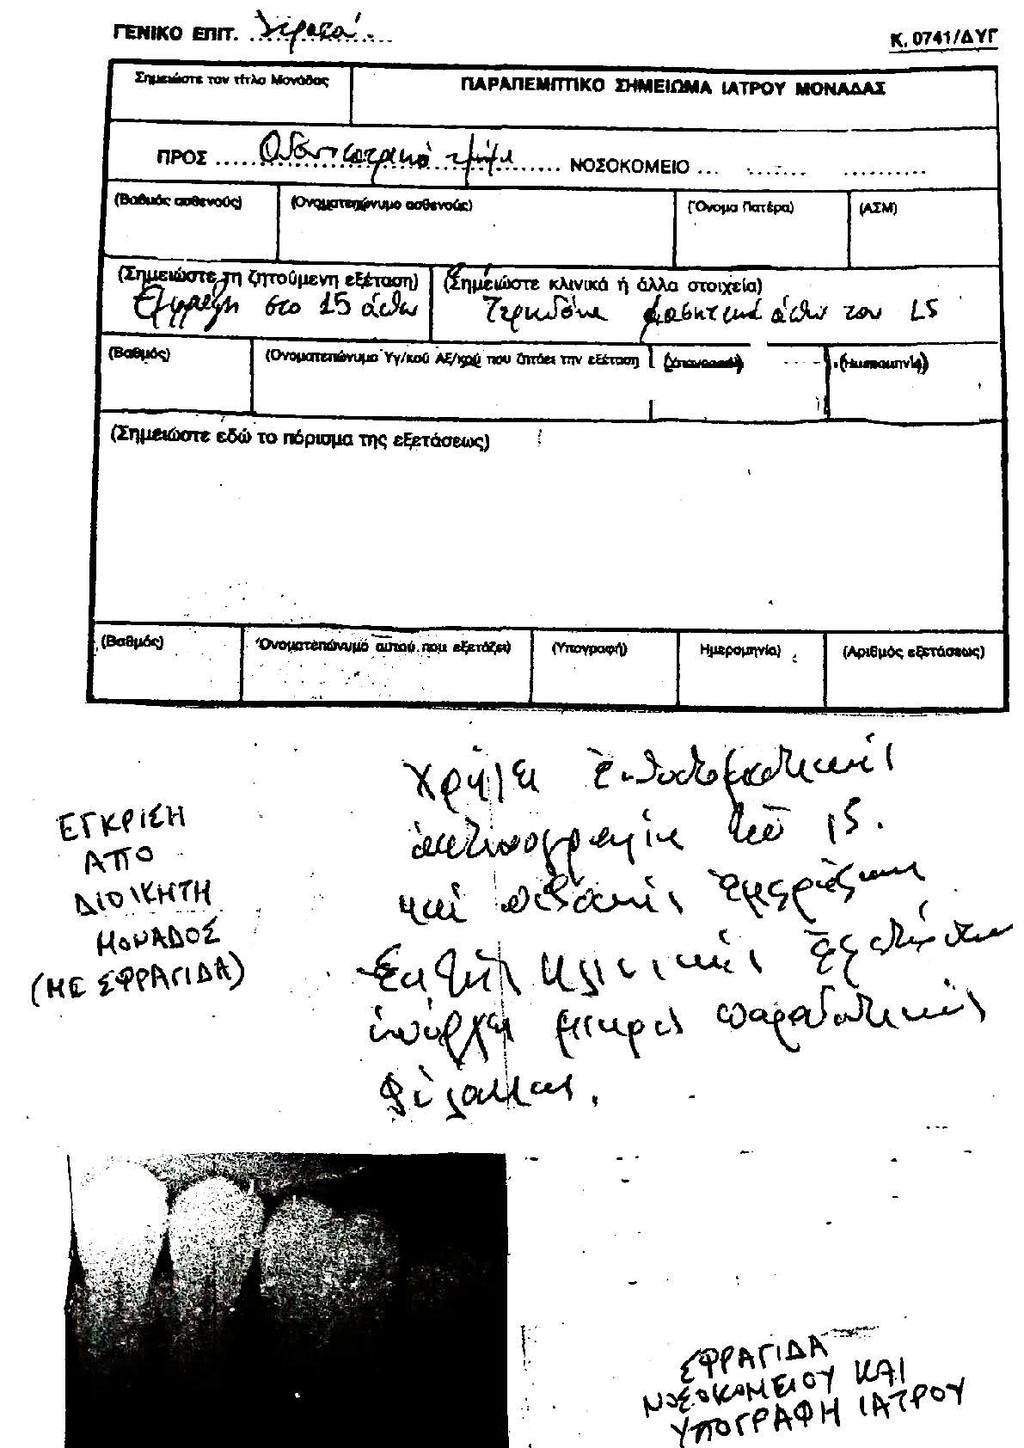 ΓΕΝΙΚΟ ΕΠΙΤ. Στρατού
Κ. 0741/ΔΥΓ
Σημειώστε τον τίτλο Μονάδας
ΠΑΡΑΠΕΜΠΤΙΚΟ ΣΗΜΕΙΩΜΑ ΙΑΤΡΟΥ ΜΟΝΑΔΑΣ
ΠΡΟΣ ..... Οδοντιατρικό τμήμα ....... ΝΟΣΟΚΟΜΕΙΟ ... ...... ..........
(Βαθμός ασθενούς)
(Ονοματεπώνυμο ασθενούς)
(Όνομα Πατέρα)
(ΑΣΜ)
(Σημειώστε τη ζητούμενη εξέταση)
(Σημειώστε κλινικά ή άλλα στοιχεία)
Έμφραξη στο 15 όπου
Τερηδόνα μασητικά άπω του 15
(Βαθμός)
(Ονοματεπώνυμο Υγ/κού ΑΞ/κού που ζητάει την εξέταση)
(Υπογραφή)
(Ημερομηνία)
(Σημειώστε εδώ το πόρισμα της εξετάσεως)
(Βαθμός)
Όνοματεπώνυμό αυτού που εξετάζει)
(Υπογραφή)
Ημερομηνία)
(Αριθμός εξετάσεως)
Χρήζει ενδοστοματικής
ακτινογραφία του 15.
και πιθανής εμφράξεως
Εκ της κλινικής εξετάσεως
υπάρχει μικρός
ΕΓΚΡΙΣΗ
ΑΠΟ
ΔΙΟΙΚΗΤΗ
ΜΟΝΑΔΟΣ
(ΜΕ ΣΦΡΑΓΙΔΑ)
ΣΦΡΑΓΙΔΑ
ΝΟΣΟΚΟΜΕΙΟΥ ΚΑΙ
ΥΠΟΓΡΑΦΗ ΙΑΤΡΟΥ